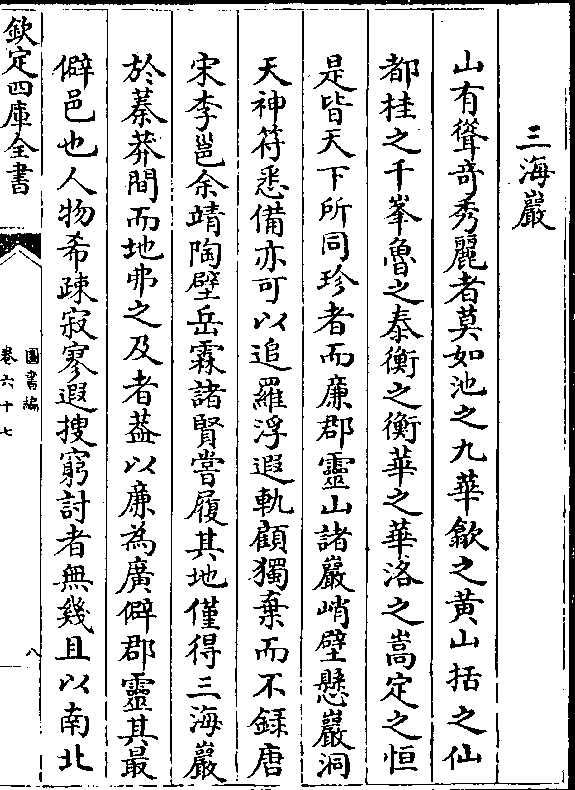 三海巖
山有聳竒秀麗者莫如池之九華歙之黄山括之仙
都桂之千峯魯之泰衡之衡華之華洛之嵩定之恒
是皆天下所同珍者而廉郡靈山諸巖峭壁懸巖洞
天神符悉備亦可以追羅浮遐軌顧獨棄而不録唐
宋李邕余靖陶壁岳霖諸賢嘗履其地僅得三海巖
於蓁莽間而地弗之及者葢以廉為廣僻郡靈其最
僻邑也人物希疎寂寥遐捜窮討者無幾且以南北
欽定四庫全書
圖書編
卷六十七
八